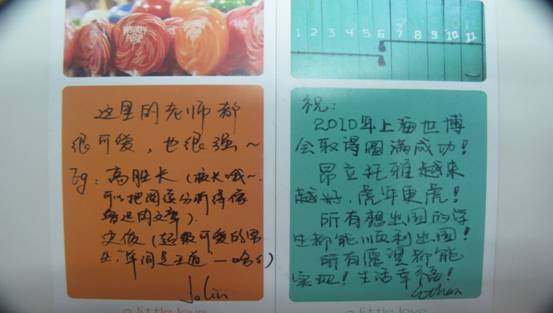 1 2 3 4 5 6 7 8 9 10 11
这里的老师都
很可爱，也很强~
Eg: 高胜长（
可以把阅读分析得像
的文章）
史俊（超级可爱的男
，年间是王道
Jolin
祝：
2010年上海世博
会取得圆满成功！
昂立托雅越来
越好，虎年更虎！
所有想出国的学
生都能顺利出国！
所有愿望都能
实现！生活幸福！
a little love